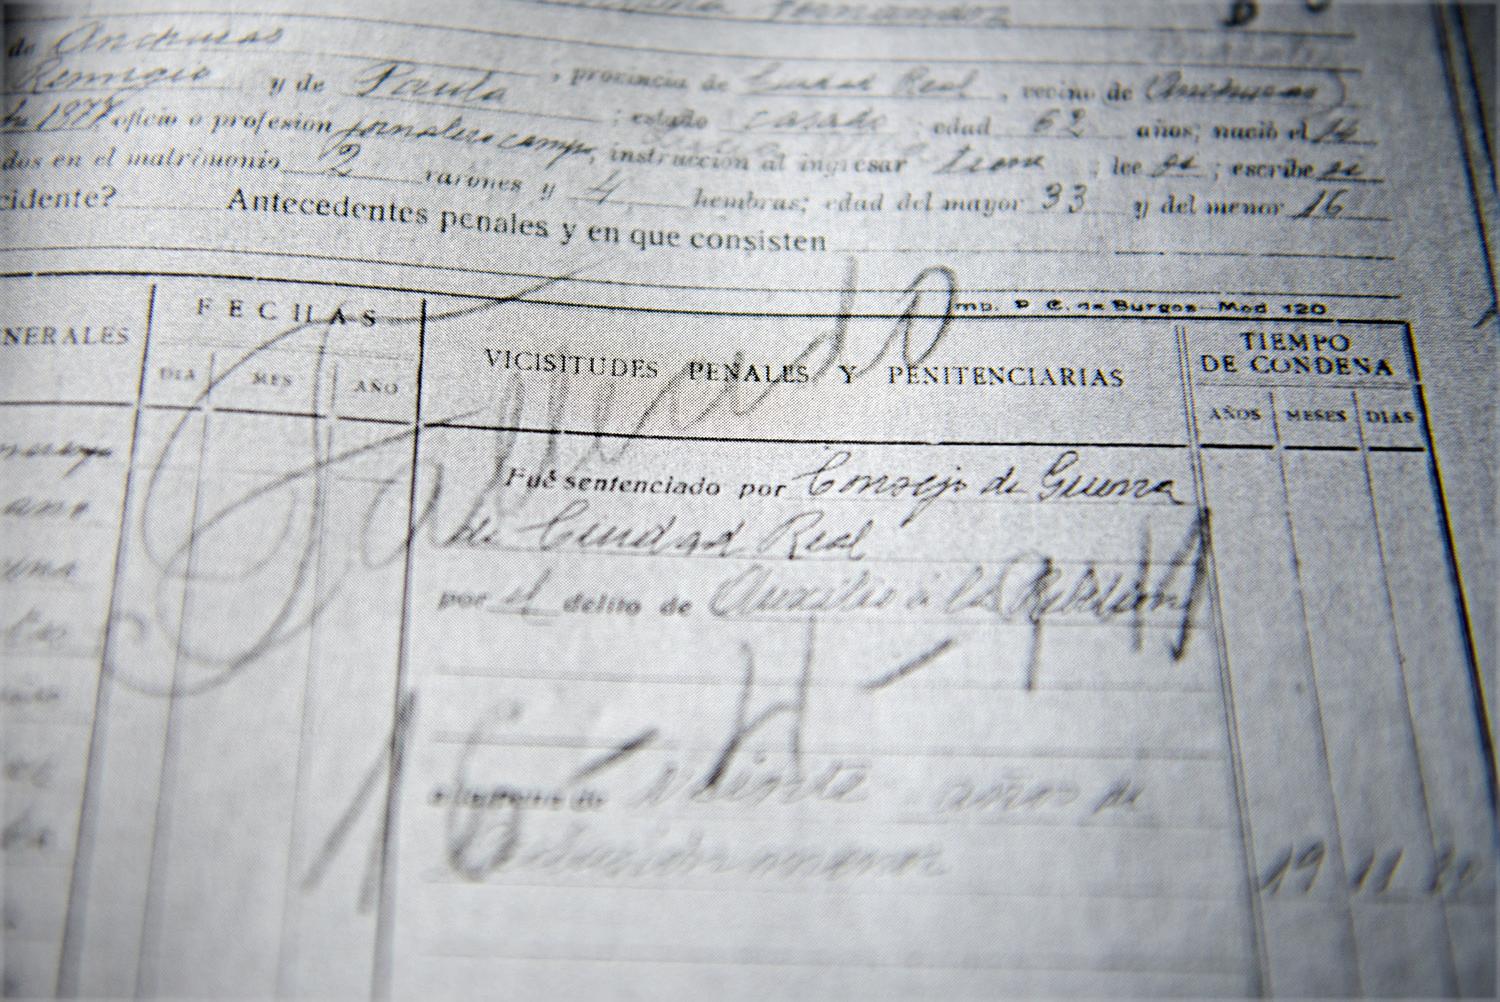 Fernandez
de Anchuras
Remigio y de Paula, provincia de Ciudad Real, vecino de Anchuras
1977, oficio o profesión jornalero campo; estado casado; edad 62 años; nació el 14
dos en el matrimonio 2 varones y 4 hembras; edad del mayor 33 y del menor 16
instrucción al ingresar tiene; lee si; escribe si
cidente? Antecedentes penales y en que consisten
Imp. P. C. de Burgos Mod 120
NERALES FECHAS VICISITUDES PENALES Y PENITENCIARIAS TIEMPO
DE CONDENA
DIA MES AÑO AÑOS MESES DIAS
Fallecido
Fué sentenciado por Consejo de Guerra
de Ciudad Real
por el delito de Auxilio a la Rebelion
16-4-41
Veinte años de
reclusión menor
19 11